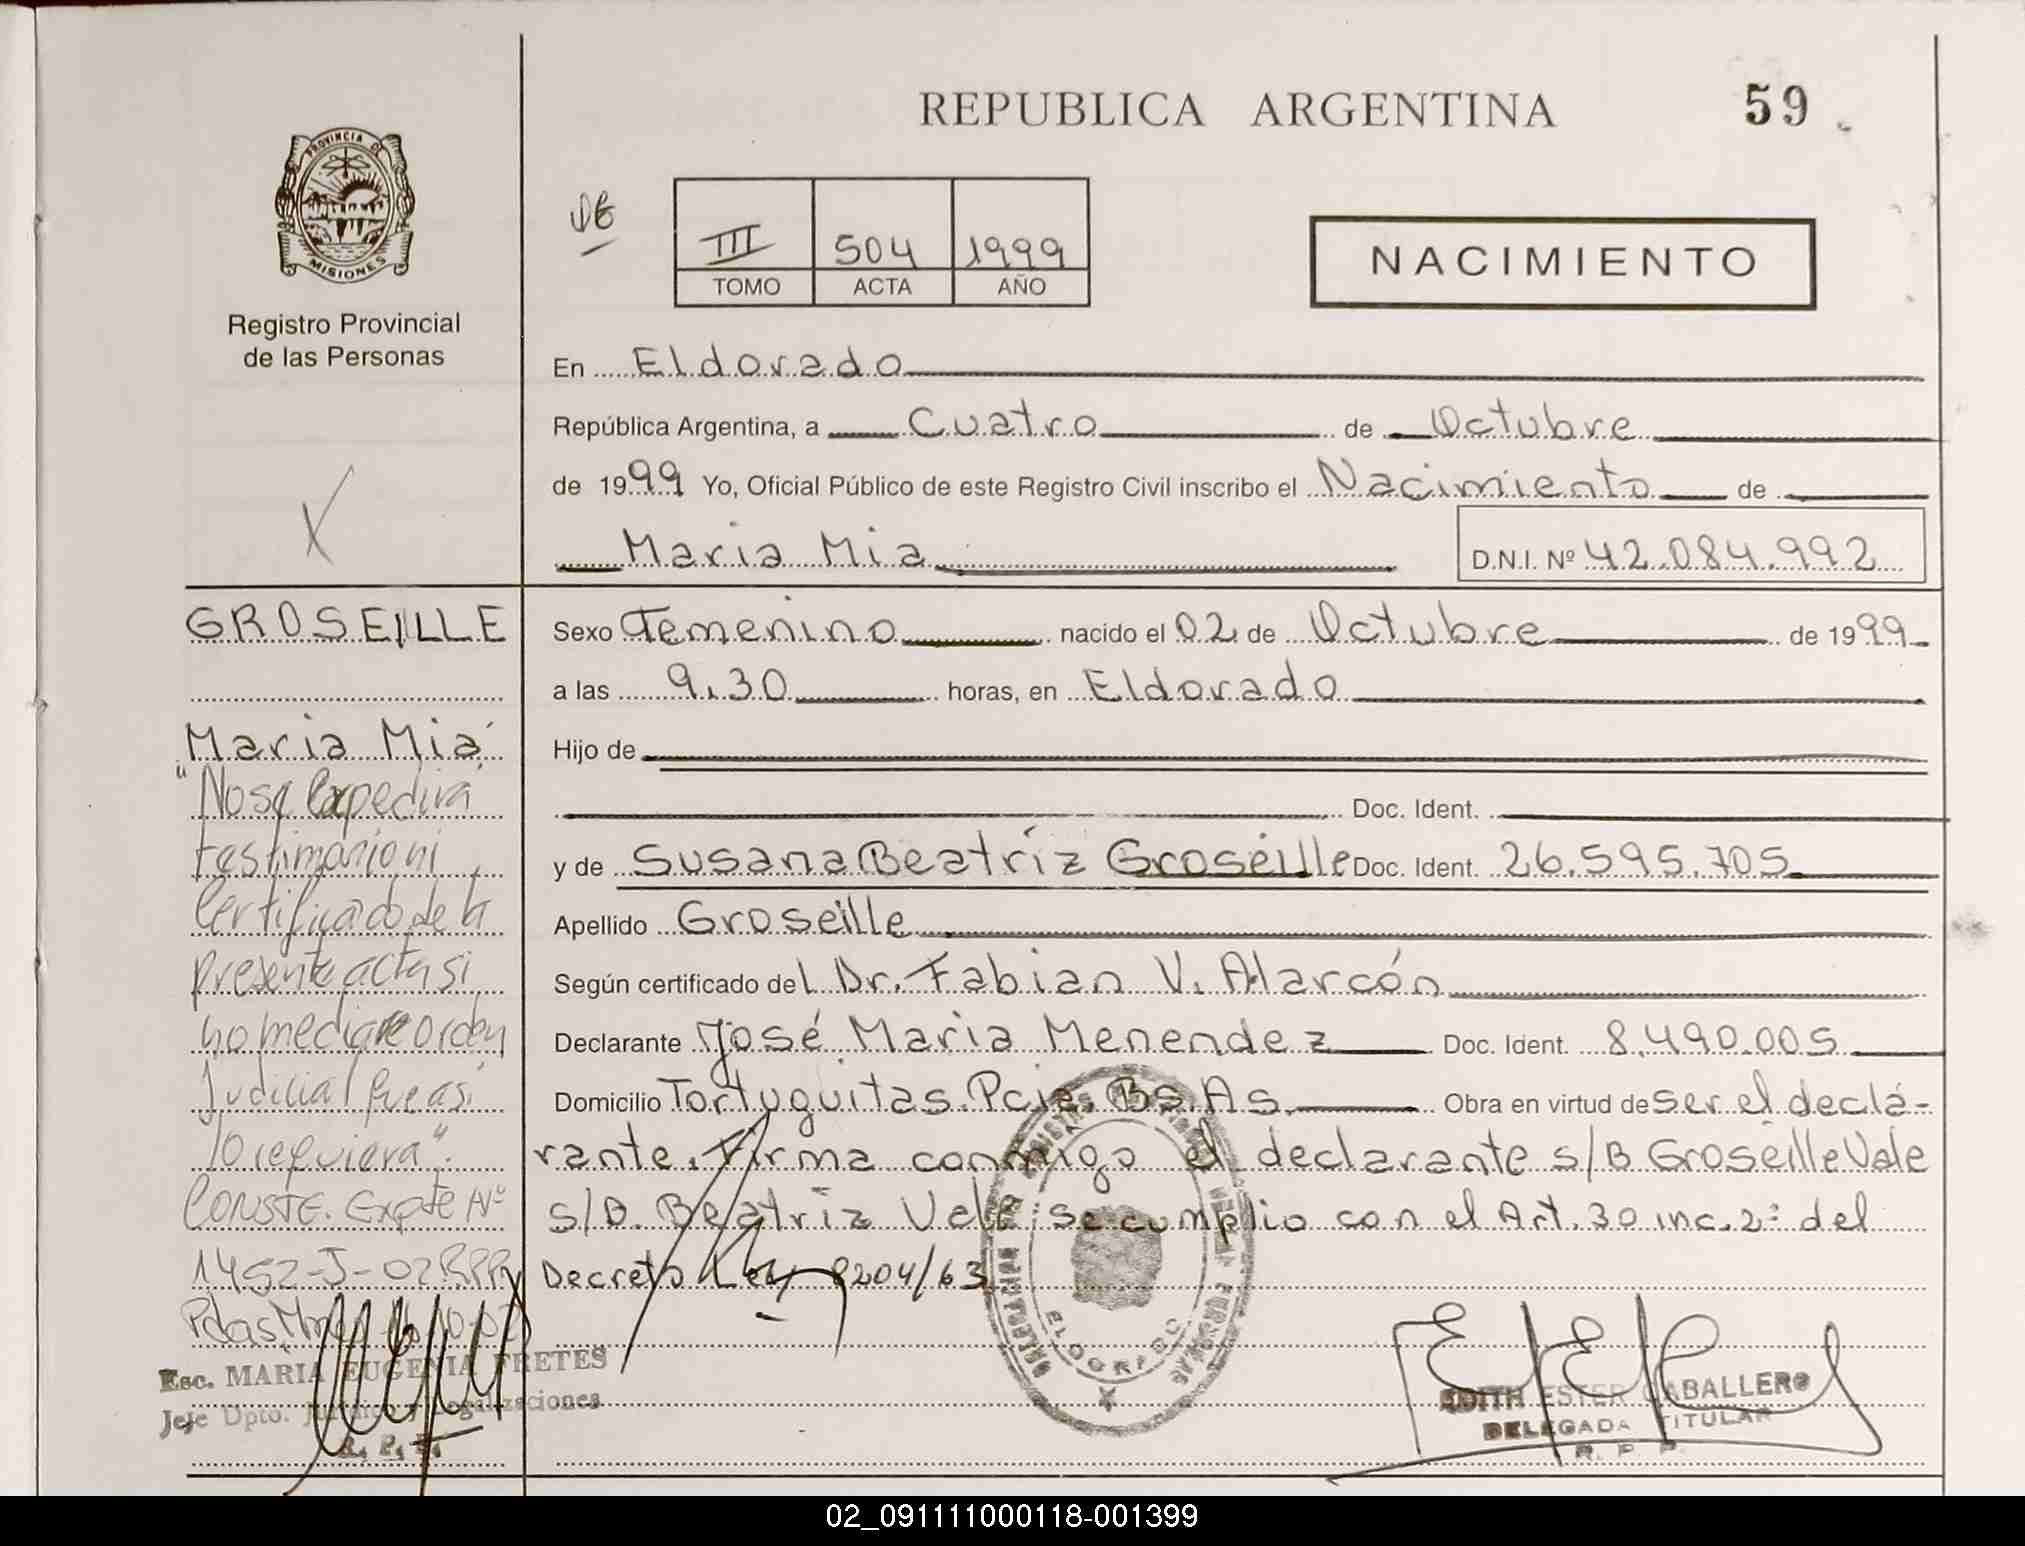 REPUBLICA ARGENTINA
59
PROVINCIA DE
MISIONES
Registro Provincial
de las Personas
III 504 1999
TOMO ACTA AÑO
NACIMIENTO
En Eldorado
República Argentina, a Cuatro de Octubre
de 1999 Yo, Oficial Público de este Registro Civil inscribo el Nacimiento de
Maria Mia
D.N.I. Nº 42.084.992
GROSEILLE
Maria Mia
"No se expedirá
testimonio ni
Certificado de la
presente acta si
no mediare orden
Judicial que asi
lo requiera".
CONSTE. Expte Nº
1452-J-02 RPP
Pdas Mnes
Esc. MARIA EUGENIA FRETES
Jefe Dpto. Jurídico y Legalizaciones
R. P. P.
Sexo Femenino nacido el 02 de Octubre de 1999
a las 9.30 horas, en Eldorado
Hijo de
Doc. Ident.
y de Susana Beatríz Groseille Doc. Ident. 26.595.705
Apellido Groseille
Según certificado del Dr. Fabian V. Alarcón
Declarante José Maria Menendez Doc. Ident. 8.490.005
Domicilio Tortuguitas. Pcia. Bs. As. Obra en virtud de ser el decla-
rante. Firma conmigo el declarante s/B Groseille Vale
s/B. Beatriz Vale; se cumplio con el Art. 30 inc. 2: del
Decreto Ley 8204/63
ELDORADO
EDITH ESTER CABALLERO
DELEGADA TITULAR
R. P. P.
02_091111000118-001399